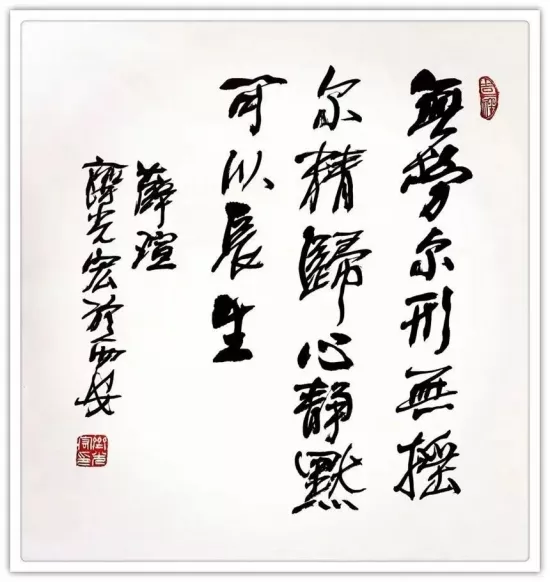 無勞尔形無摇
尔精歸心静默
可以長生
薛瑄
光宏於西安